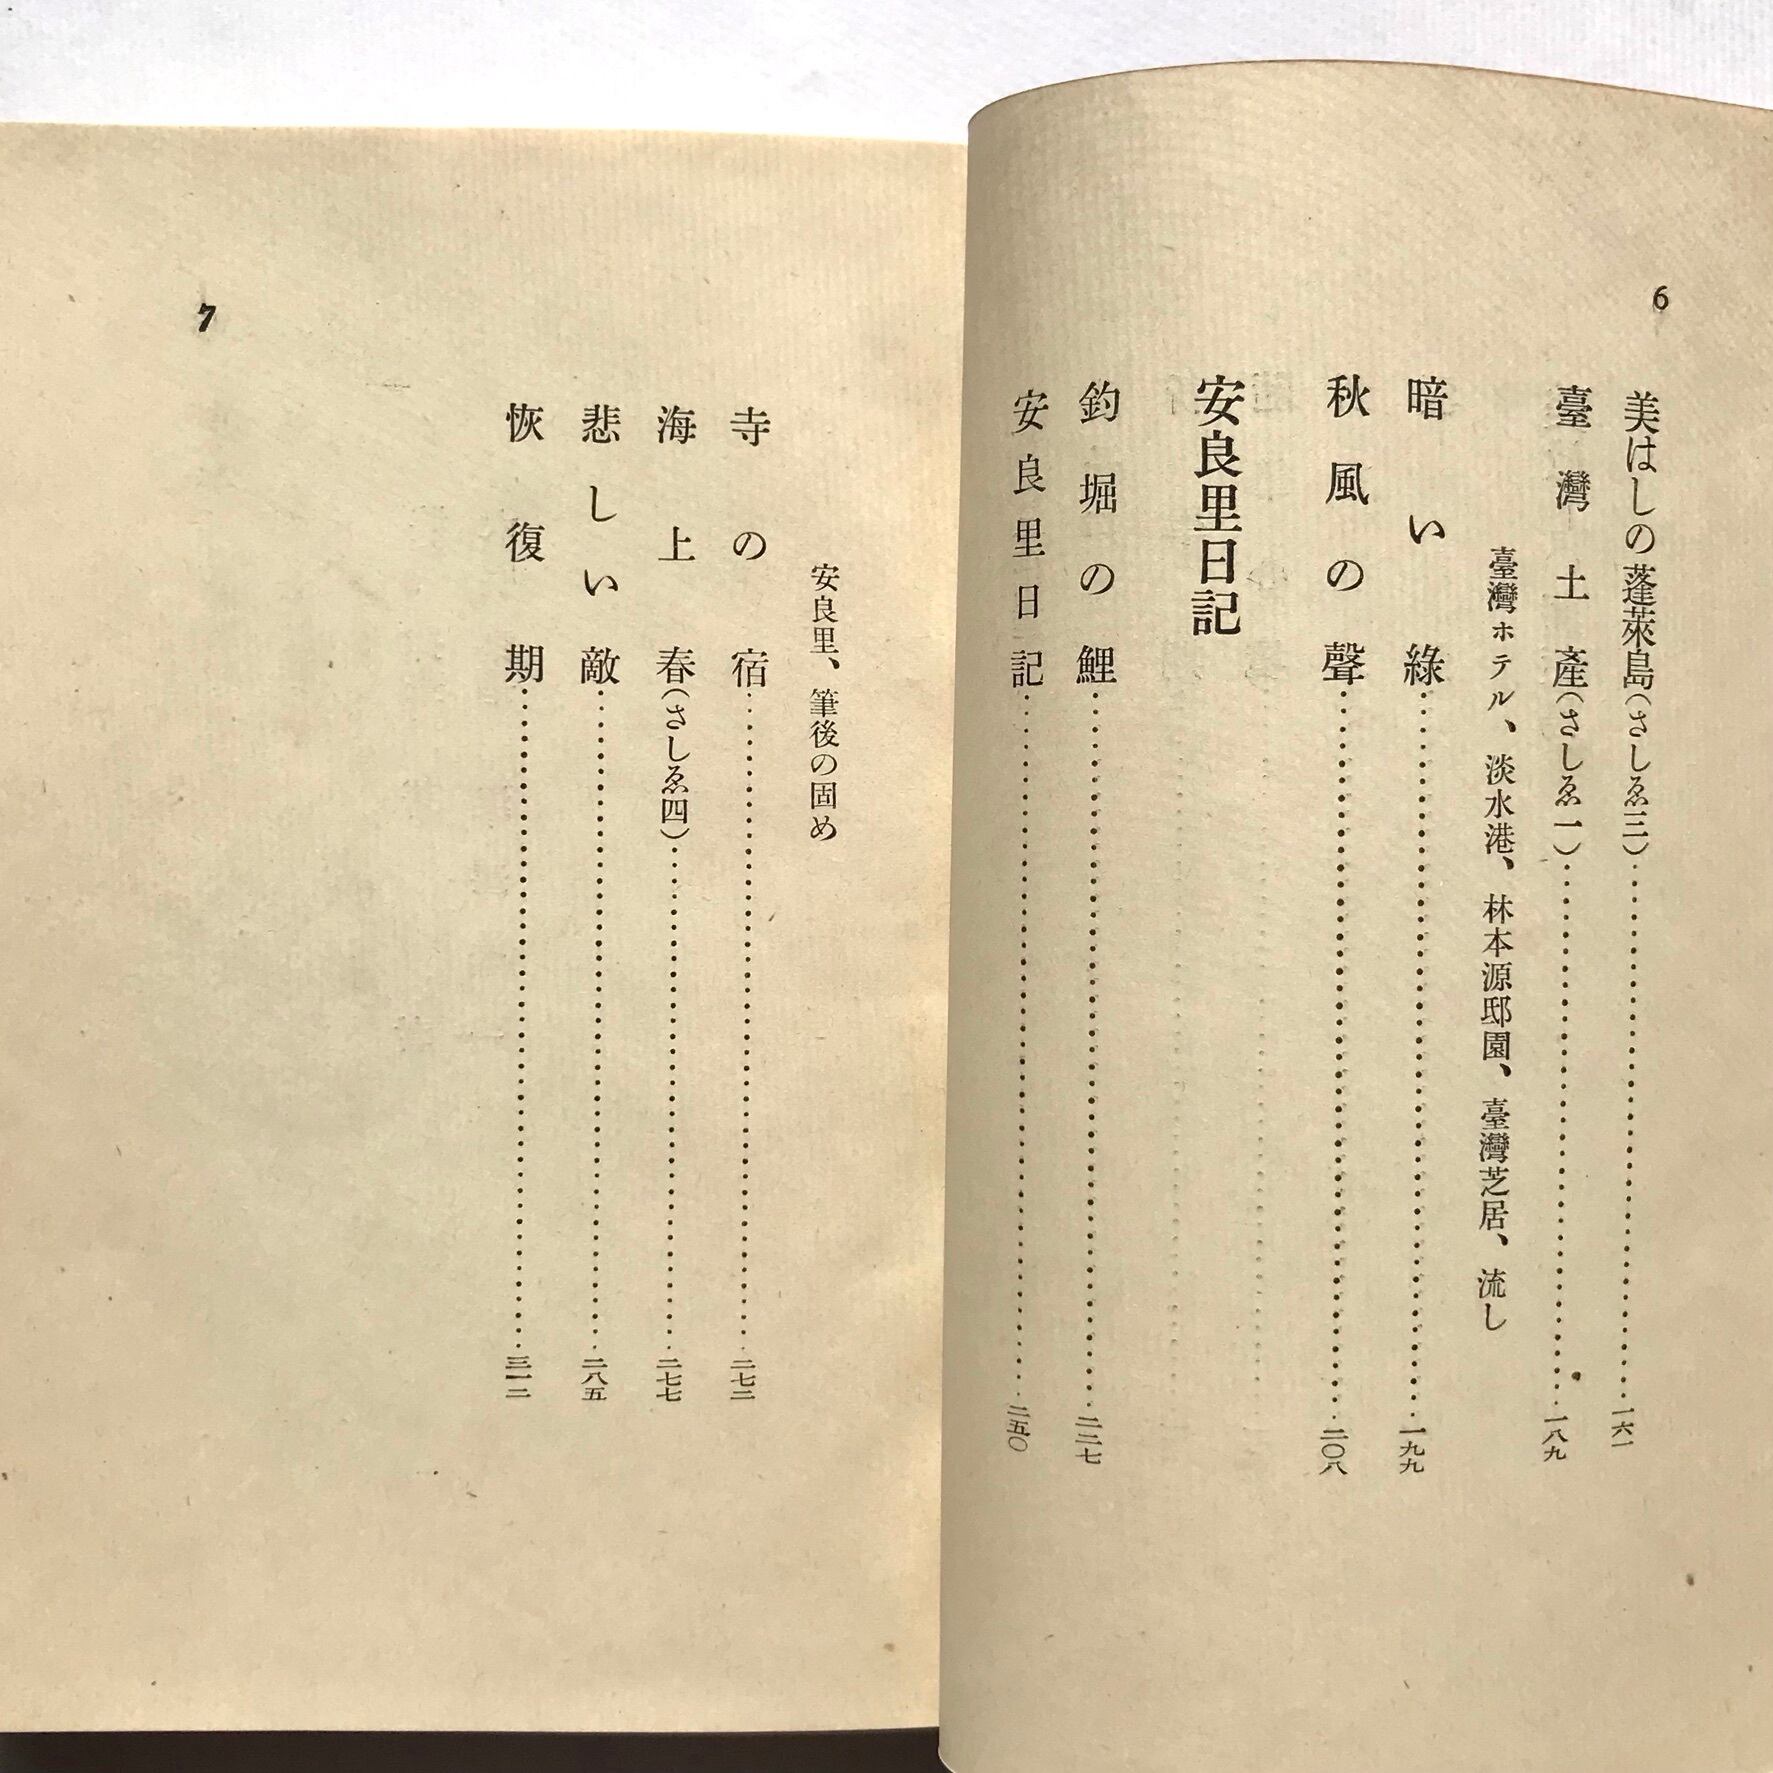 6
美はしの蓬萊島(さしゑ三)……一六一
臺灣土產(さしゑ一)……一八九
臺灣ホテル、淡水港、林本源邸園、臺灣芝居、流し
暗い綠……一九九
秋風の聲……二〇八
安良里日記
釣堀の鯉……二二七
安良里日記……二五〇
7
安良里、筆後の固め
寺の宿……二七二
海上春(さしゑ四)……二七七
悲しい敵……二八五
恢復期……三一二